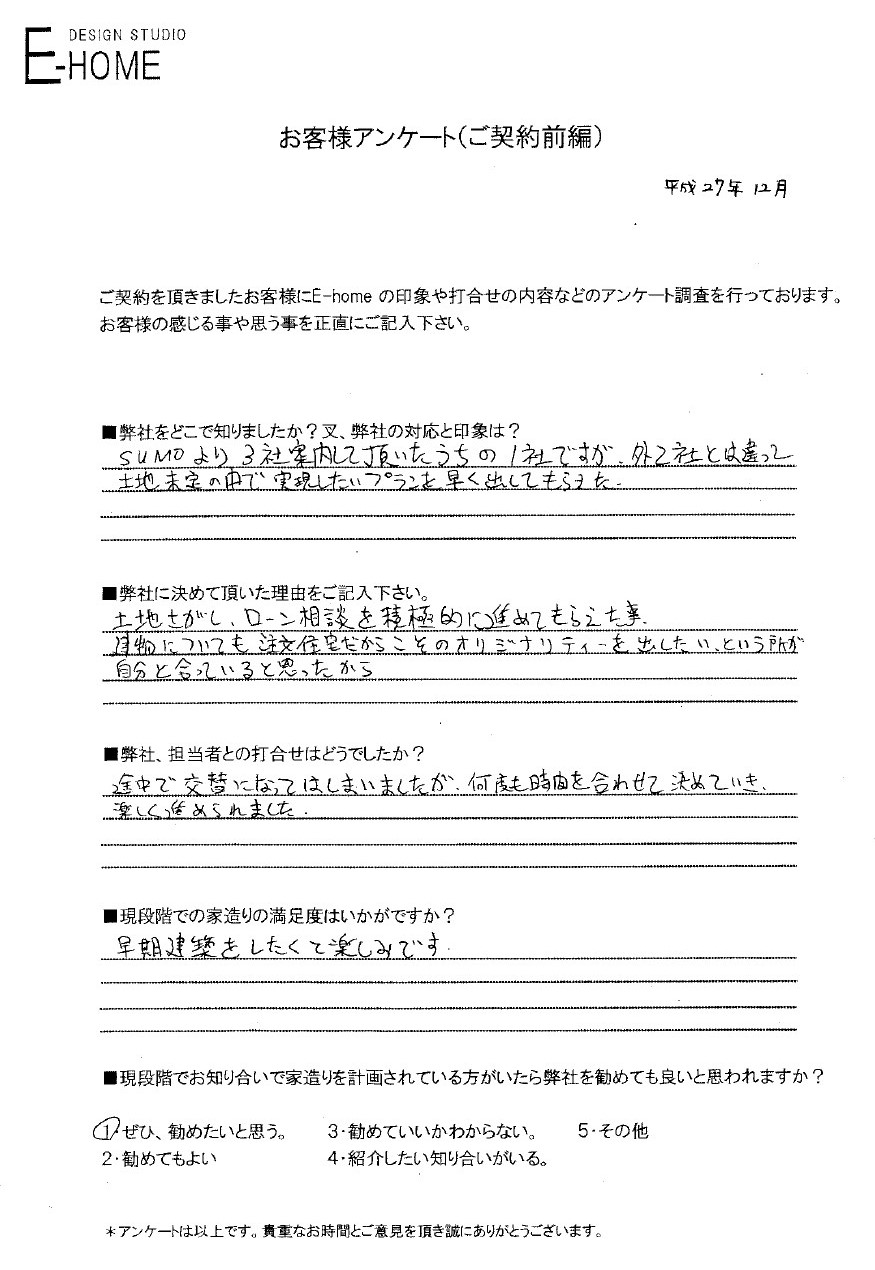 DESIGN STUDIO
E-HOME
お客様アンケート(ご契約前編)
平成27年12月
ご契約を頂きましたお客様にE-home の印象や打合せの内容などのアンケート調査を行っております。
お客様の感じる事や思う事を正直にご記入下さい。
■弊社をどこで知りましたか?又、弊社の対応と印象は?
SUMOより3社案内して頂いたうちの1社ですが、外2社とは違って
土地未定の中で実現したいプランを早く出してもらえた.
■弊社に決めて頂いた理由をご記入下さい。
土地さがし、ローン相談を積極的に進めてもらえた事.
建物についても注文住宅だからこそのオリジナリティーを出したい、という所が
自分と合っていると思ったから
■弊社、担当者との打合せはどうでしたか?
途中で交替になってはしまいましたが、何度も時間を合わせて決めていき、
楽しく進められました.
■現段階での家造りの満足度はいかがですか?
早期建築をしたくて楽しみです.
■現段階でお知り合いで家造りを計画されている方がいたら弊社を勧めても良いと思われますか?
1・ぜひ、勧めたいと思う。 3・勧めていいかわからない。 5・その他
2・勧めてもよい 4・紹介したい知り合いがいる。
*アンケートは以上です。貴重なお時間とご意見を頂き誠にありがとうございます。